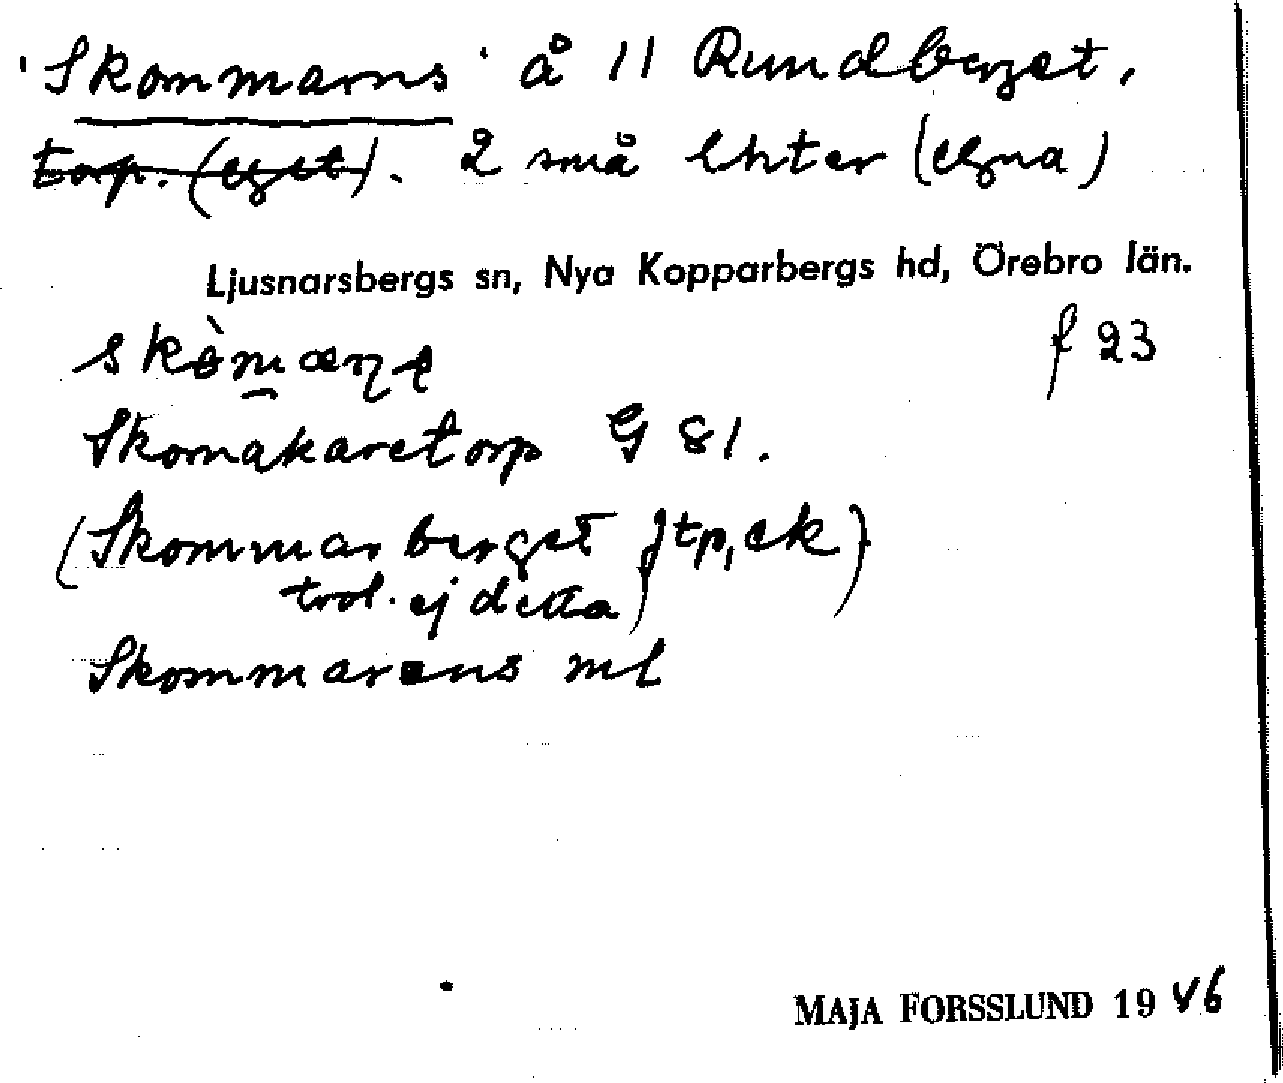 'Skommarns' å 11 Rundberget,
torp. (eget). 2 små lhter (egna)
Ljusnarsbergs sn, Nya Kopparbergs hd, Örebro län.
f 23
Skomakaretorp G 81.
(Skommarberget jtp, ek)
trol. ej detta
Skommarens ml
MAJA FORSSLUND 19 46